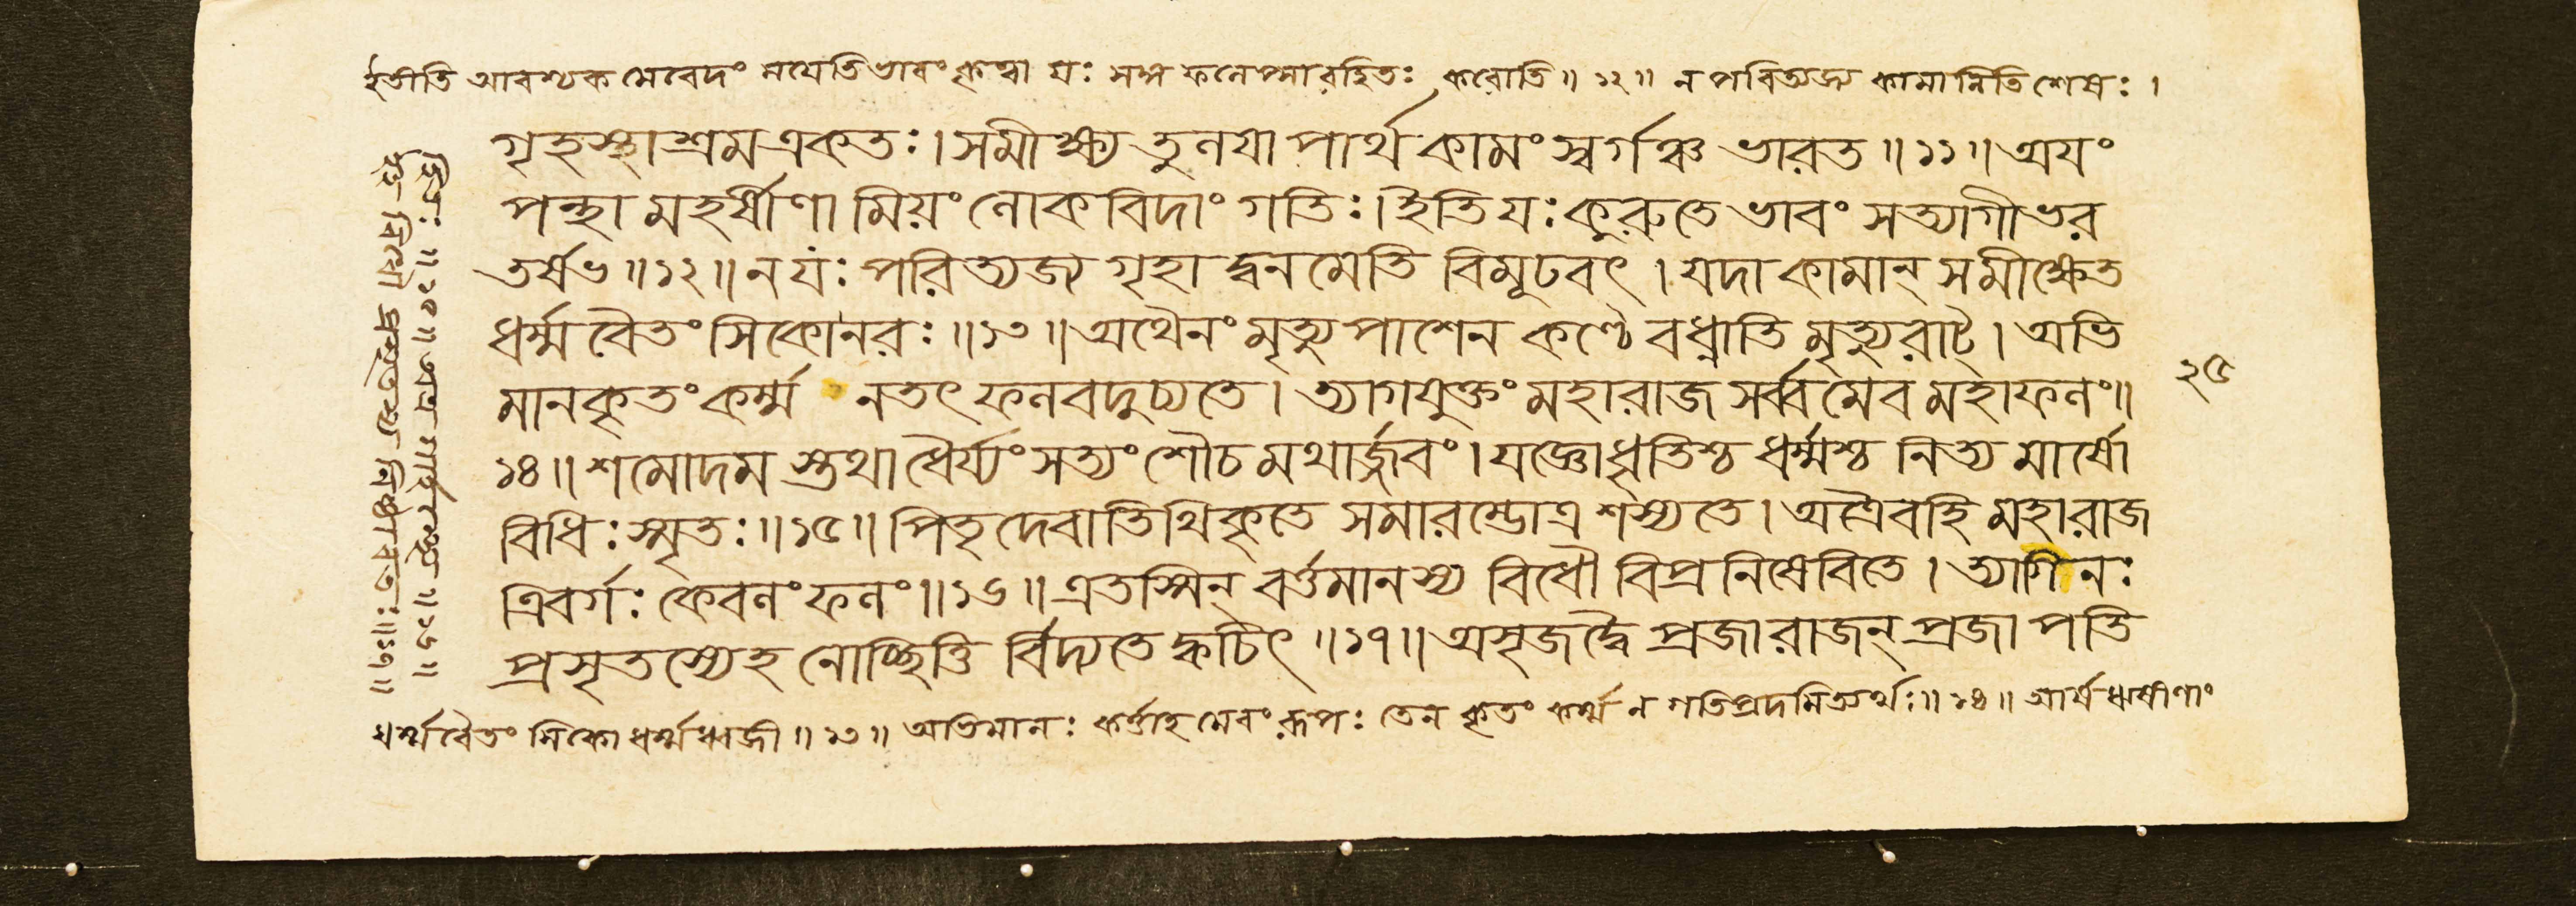 ইতীতি আবশ্যক মেবেদং মযেতিভাবং কৃত্বা যঃ সঙ্গ ফলেপ্সারহিতঃ করোতি॥ ১২॥ ন পরিত্যজ্য কামানিতিশেষঃ।
গৃহস্থাশ্রমএকতঃ। সমীক্ষ্য তুলযা পার্থ কামং স্বর্গঞ্চ ভারত॥১১॥ অযং
পন্থা মহর্ষীণা মিয়ং লোকবিদাং গতিঃ। ইতিযঃ কুরুতে ভাবং সত্যাগীভর
তর্ষভ॥১২॥ নযঃ পরিত্যজ্য গৃহা দ্বনমেতি বিমূঢবৎ। যদা কামান্ সমীক্ষেত
ধর্ম্মবৈতংসিকোনরঃ॥১৩॥ অথৈনং মৃত্যুপাশেন কণ্ঠে বধ্নাতি মৃত্যুরাট্। অভি
মানকৃতং কর্ম্ম নতৎ ফলবদুচ্যতে। ত্যাগযুক্তং মহারাজ সর্ব্বমেব মহাফলং॥
১৪॥ শমোদম স্তথা ধৈর্য্যং সত্যং শৌচমথার্জ্জবং। যজ্ঞোধৃতিশ্চ ধর্ম্মশ্চ নিত্যমার্ষো
বিধিঃ স্মৃতঃ॥১৫॥ পিতৃদেবাতিথিকৃতে সমারম্ভোত্র শস্যতে। অত্রৈবহি মহারাজ
ত্রিবর্গঃ কেবলং ফলং॥১৬॥ এতস্মিন্ বর্ত্তমানস্য বিধৌ বিপ্রনিষেবিতে। ত্যাগিনঃ
প্রসৃতস্যেহ নোচ্ছিত্তি র্বিদ্যতে ক্বচিৎ॥১৭॥ অসৃজদ্বৈ প্রজারাজন্ প্রজাপতি
ধর্ম্মবৈতংসিকোধর্ম্মধ্বজী॥১৩॥ অভিমানঃ কর্ত্তাহমেবংরূপঃ তেন কৃতং কর্ম্ম ন গতিপ্রদমিত্যর্থঃ॥১৪॥ আর্ষ ঋষীণাং
॥১৫॥ অত্র গার্হস্থ্যে॥১৬॥
॥১৭॥
২৫